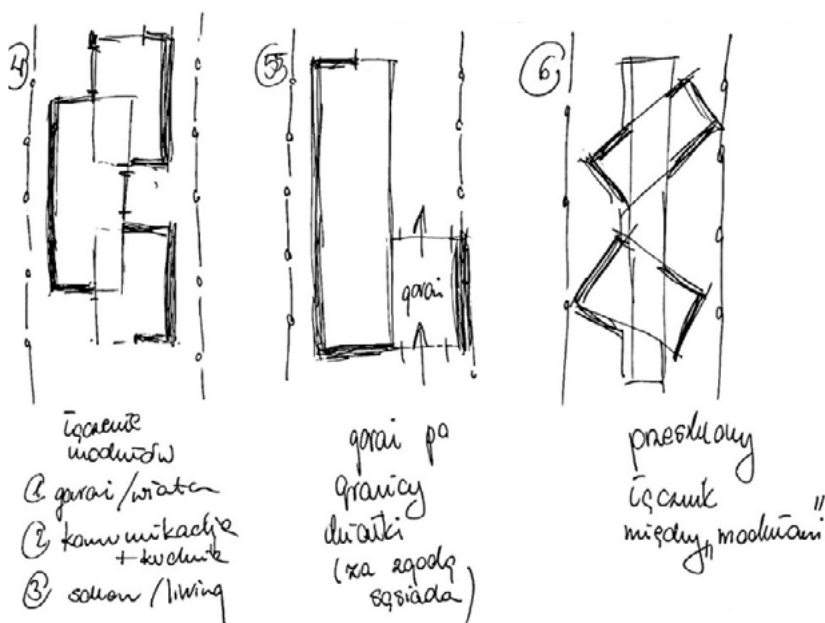 4
łączenie
modułów
① garaż/wiata
② komunikacja
+ kuchnia
③ salon/living
5
garaż
garaż po
granicy
działki
(za zgodą
sąsiada)
6
przeszklony
łącznik
między „modułami”